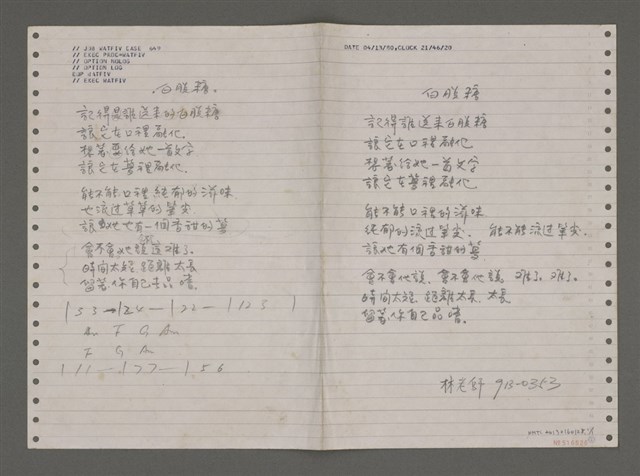 // JOB WATFIV CASE
// EXEC PROC=WATFIV
// OPTION NOLOG
// OPTION LOG
COP WATFIV
// EXEC WATFIV
白脫糖
記得是誰送來的白脫糖
讓它在口裡融化
想著要給她一首文字
讓它在夢裡融化
能不能口裡純郁的滋味
也流过草草的筆尖
讓她也有一個香甜的夢
會不會她說這难了
時間太短 距離太長
留著你自己去品嚐
| 5 3 → | 2 4 — | 2 2 — | 1 2 3 |
Am F G Am
F G Am
| 1 1 — | 7 7 — | 5 6
DATE 04/13/80,CLOCK 21/46/20
白脫糖
記得誰送來白脫糖
讓它在口裡融化
想著給她一首文字
讓它在夢裡融化
能不能口裡的滋味
純郁的流过筆尖 能不能流过筆尖
讓她有個香甜的夢
會不會他說 會不會他說 难了 难了
時間太短 距離太長 太長
留著你自己品嚐
913-0353